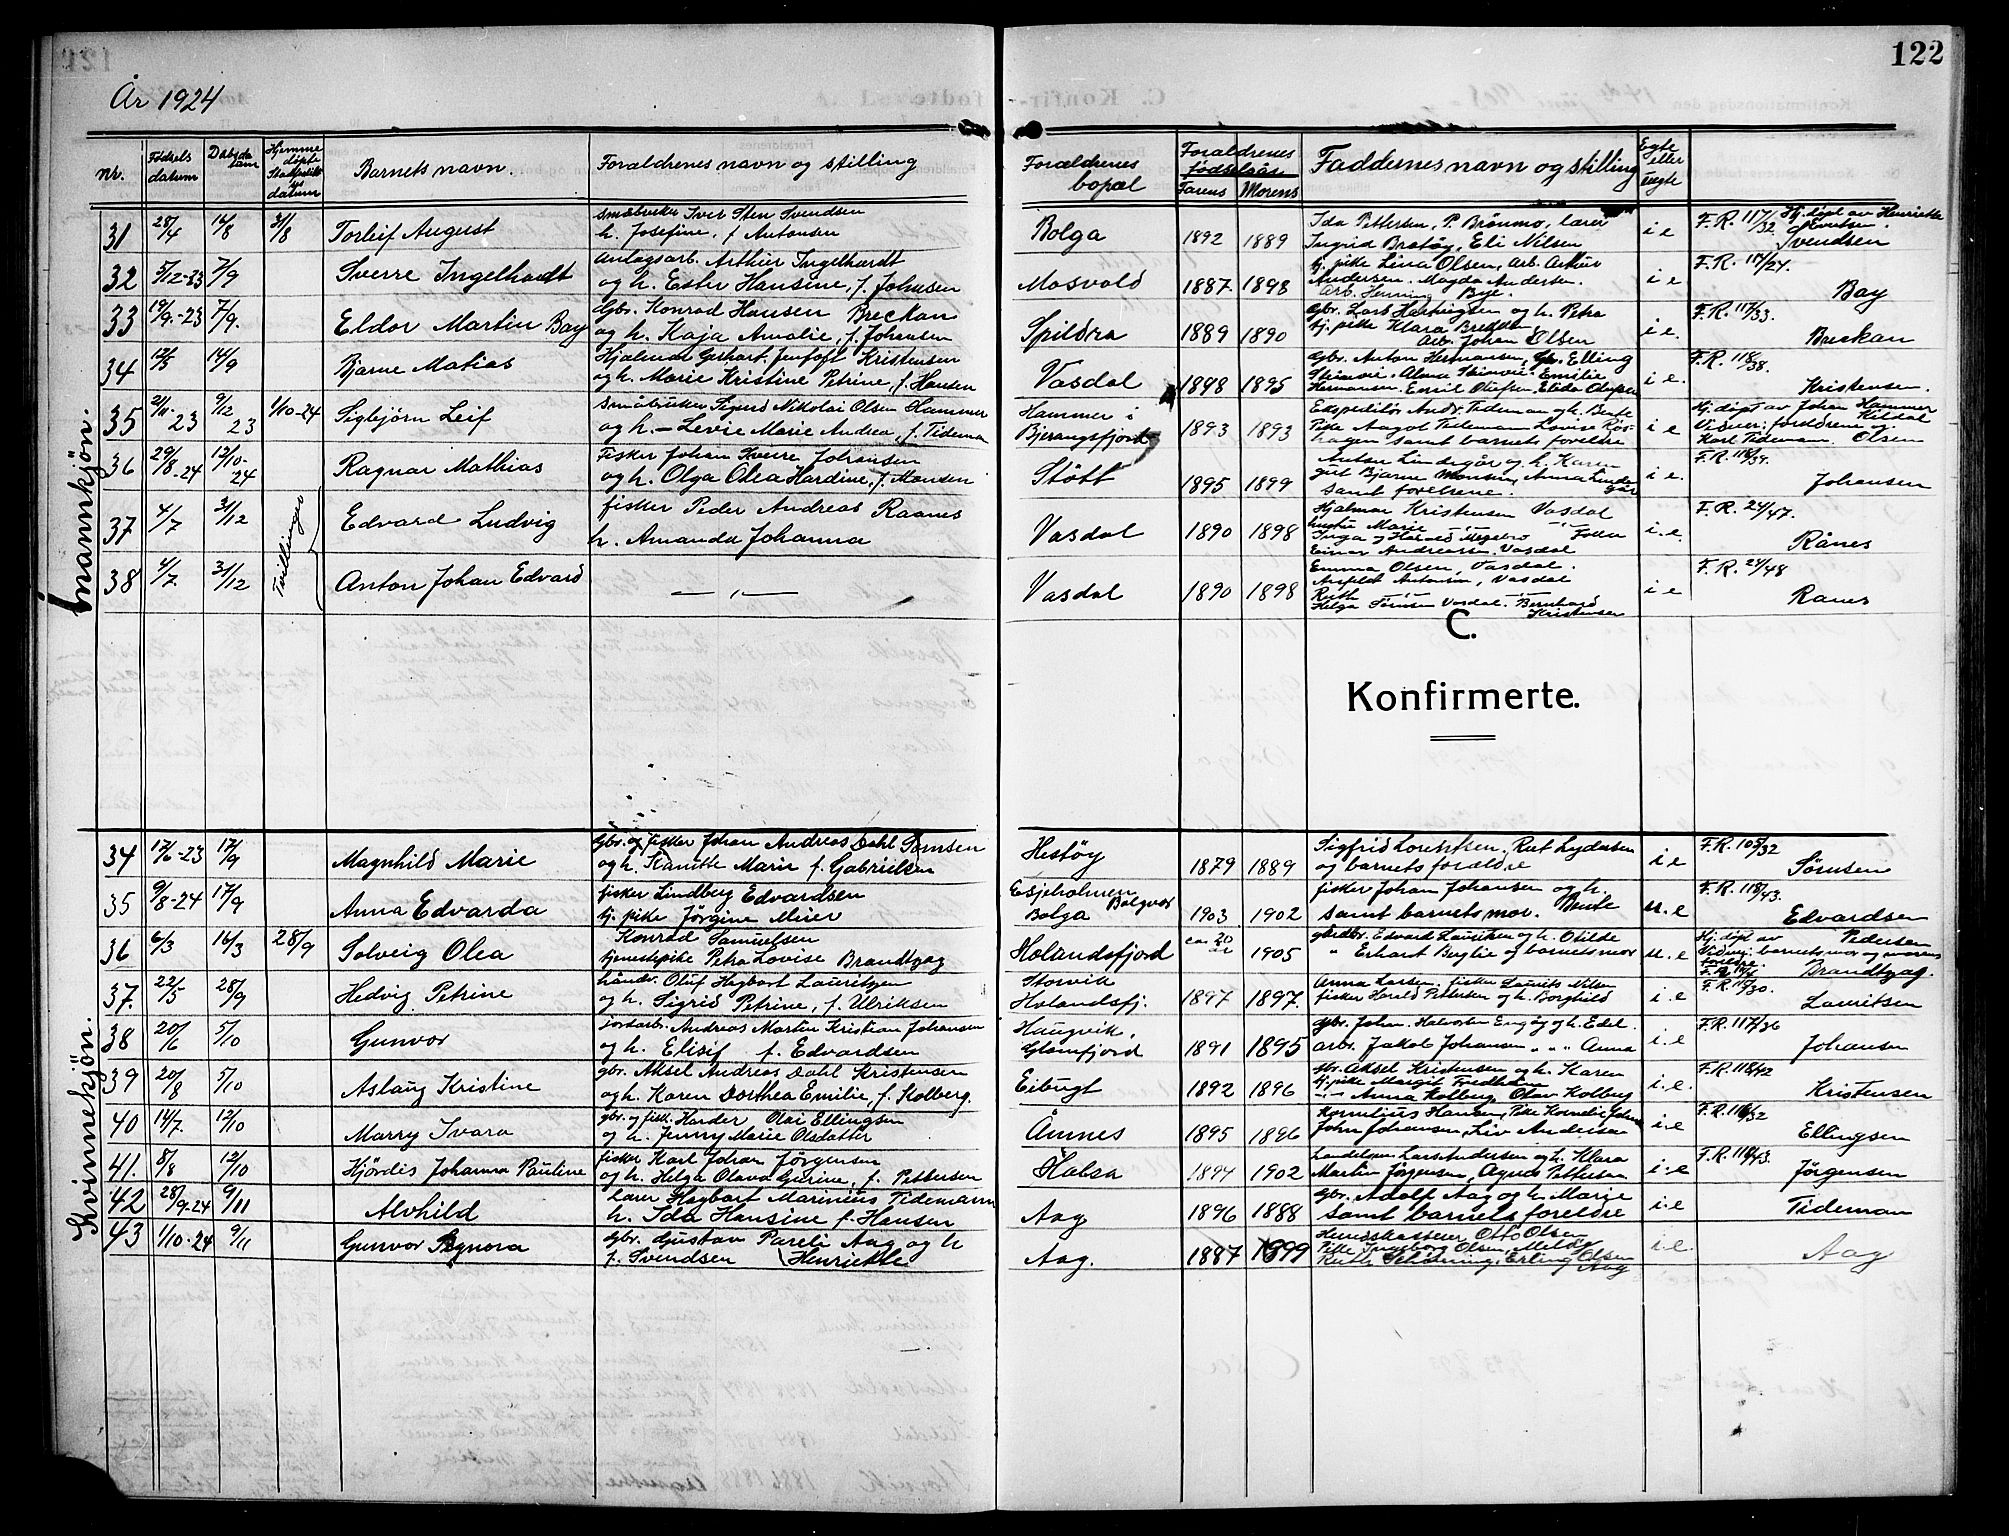 122
År 1924
Nr. Fødsels datum Dåbsdatum Hjemmedøpte Barnets navn. Forældrenes navn og stilling Forældrenes bopæl Forældrenes fødselsår Farens Morens Faddernes navn og stilling Egte eller uegte
Mannkjøn.
31 28/4 16/8 31/8 Torleif August Småbruker Iver Sten Svendsen Bolga 1892 1889 Ida Pettersen, P. Brönmo, lærer i e F.R. 117/32 Hj. döpt av Henriette Sivertsen.
h. Josefine, f Antonsen Ingrid Bratöy, Eli Nilsen Svendsen
32 5/12-23 7/9 Sverre Ingelhardt anlagsarb. Arthur Ingelhardt Mosvold 1887 1898 tj. pike Lina Olsen, Arb. Arthur i e F.R. 117/24.
og h. Ester Hansine, f. Johnsen Andersen. Magda Andersen. Arb. Henning Bye. Bay
33 19/9-23 7/9. Eldor Martin Bay Gbr. Konrad Hansen Breckan Spildra 1889 1890 Gbr. Lars Hartvigsen og h. Petra i e. F.R. 117/33.
og h. Kaja Amalie, f. Johansen tj. pike Klara Brekken Arb. Johan Olsen Breckan
34 12/5 14/9 Bjarne Matias Hjalmar Gerhart Jentoft Kristensen Vasdal 1898 1895 Gbr. Anton Hermansen, Elling i e. F.R. 118/38.
og h. Marie Kristine Petrine, f. Hansen Hermansen. Emil Olufsen, Elida Olufsen Kristensen.
35 21/11-23 9/12 23 1/10-24 Sigbjörn Leif Småbruker Sigurd Nikolai Olsen Hammer Hammer i Bjerangsfjord 1893 1893 Ekspeditör Andr. Tideman og h. Berte i e Hj. döpt av Johan Hammer Kildal
og h. - Levie Marie Andrea, f. Tideman Pike Aagot Tideman Lovise samt barnets foreldre Vidner: foreldrene og Karl Tideman. Olsen
36 29/8-24 12/10-24 Ragnar Mathias Fisker Johan Sverre Johansen Stött 1895 1899 Lindegår og h. Karen i e. F.R. 118/39.
og h. Olga Olea Hardine, f. Monsen gut Bjarne Monsen, Anna Lindegår samt forelsrene. Johansen
37 4/7 31/12 Tvillinger Edvard Ludvig fisker Peder Andreas Raanes Vasdal 1890 1898 Hjalmar Kristensen Vasdal i.e. F.R. 24/47.
h. Amanda Johanna hustru Marie Inga og Harald Einar Andreassen. Vasdal Rånes
38 4/7. 31/12 Anton Johan Edvard — " — Vasdal 1890 1898 Emma Olsen, Vasdal. i e F.R. 24/48
Antonsen, Vasdal Ruth Helga Vasdal. Bernhard Kristensen Ranes
C.
Konfirmerte.
Kvinnekjøn.
34 12/6-23 17/9 Magnhild Marie Gbr. og fisker Johan Andreas Dahl Sörnsen Hestöy 1879 1889 Sigfrid Lorentsen, Rut Lydersen i e F.R. 105/32
og h. Marie f. Gabrielsen og barnets forældre Sörnsen
35 9/8-24 17/9 Anna Edvarda fisker Lindberg Edvardsen Esjeholmen Bolgvær Bolga 1903 1902 fisker Johan Johansen og h. Berte u. e F.R. 118/43.
tj. pike Jörgine Meier samt barnets mor. Edvardsen
36 6/3 16/3 28/9 Solveig Olea Konrad Samuelsen Holandsfjord ca. 20 år 1905 gårdbr. Edvard Lauritsen og h. Otilde u. e Hj. döpt av Pedersen
tjenestepike Petra Lovise Brandtzag " Erhart Berglie og barnets mor Vidner: barnets mor og morens foreldre Brandtzag.
37. 22/5 28/9 Hedvig Petrine håndv. Oluf Hagbart Lauritzen Storvik Holandsfj. 1897 1897. Anna Larsen. fisker Laurits Nilsen i e
og h. Sigrid Petrine, f. Ulriksen fisker Harald Pettersen og h. Borghild Lauritsen
38 20/6 5/10 Gunvor jordarb. Andreas Martin Kristian Johansen Haugvik, Glomfjord 1891 1895 Gbr. Johan. Halvorsen Engöy og h. Edel. i.e F.R. 117/36
og h. Elisif f. Edvardsen arb. Jakob Johansen " " " Anna Johansen
39 20/8 5/10 Aslaug Kristine gbr. Aksel Andreas Dahl Kristensen Eibugt 1892 1896 gbr. Aksel Kristensen og h. Karen i.e. F.R. 118/42
og h. Karen Dorthea Emilie, f. Kolberg. tj. pike Margit Fredheim " - Anna Kolberg Olav Kolberg Kristensen
40 14/7. 12/10 Marry Ivara gbr. og fisk. Harder Olai Ellingsen Åmnes 1895 1896 Kornelius Hansen, Pike Kornelie i e F.R. 118/32
og h. Jenny Marie Olsdatter John Johansen, Liv Andersen Ellingsen
41. 8/8 12/10 Hjördis Johanna Pauline fisker Karl Johan Jörgensen Halsa 1894 1902 Lars Andersen og h. Klara i-e F.R. 118/43.
og h. Helga Olava Gurine, f. Pettersen Martin Jörgensen, Agnes Pettersen Jörgensen
42 28/9-24 9/11 Alvhild lærer Hagbart Marinius Tidemann Aag 1896 1888 Gbr. Adolf Aag og h. Marie i-e
h. Ida Hansine f. Hansen samt barnets foreldre Tideman
43 1/10-24 9/11 Gunvor Signora Gbr. Gustav Pareli Aag og h Aag. 1887 1899 Herredskasserer Otto Olsen i.e.
f. Svendsen Henriette Pike Ingeborg Olsen, Ruth Schöning, Erling Olsen Aag Aag